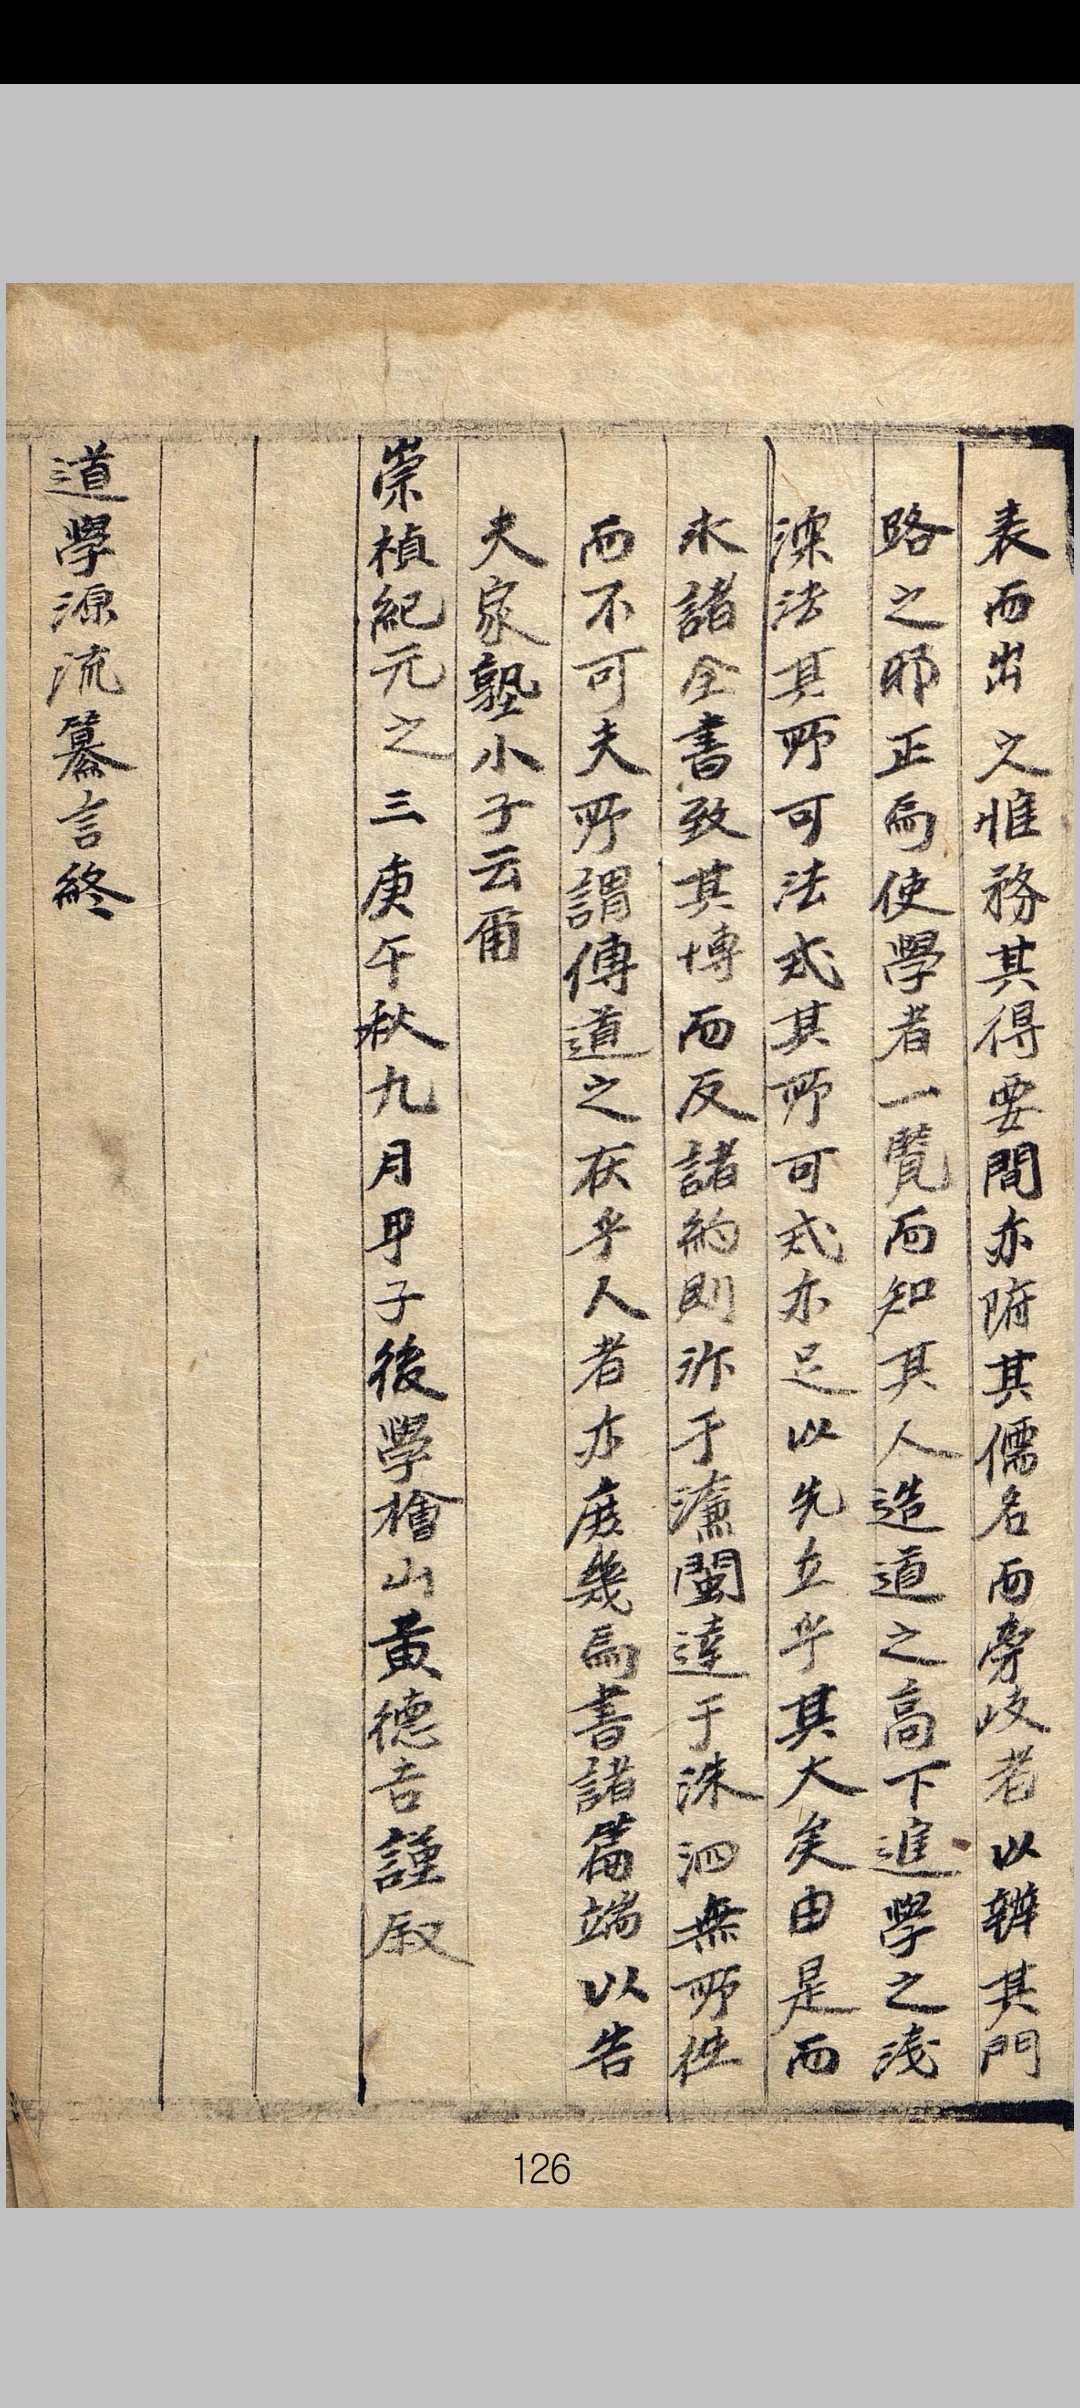 表而出之惟務其得要間亦附其儒名而旁歧者以辨其門
路之邪正焉使學者一覽而知其人造道之高下進學之淺
深法其所可法式其所可式亦足以先立乎其大矣由是而
求諸全書致其博而反諸約則泝于濂閩達于洙泗無所往
而不可夫所謂傳道之在乎人者亦庶幾焉書諸篇端以告
夫家塾小子云爾
崇禎紀元之三庚午秋九月甲子後學檜山黃德吉謹敍
道學源流纂言終
126